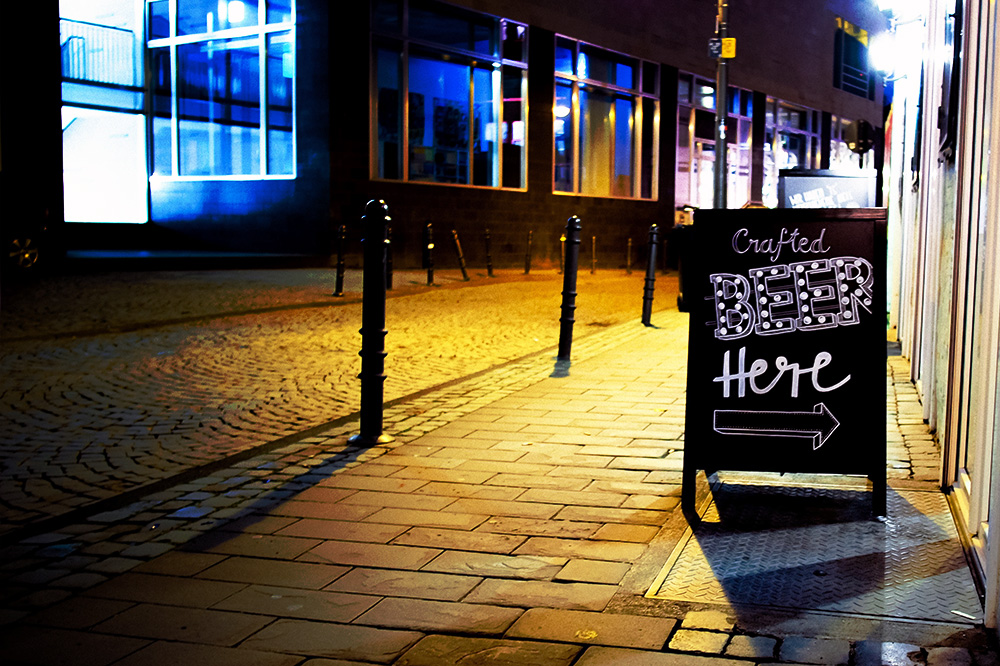 Crafted
BEER
Here